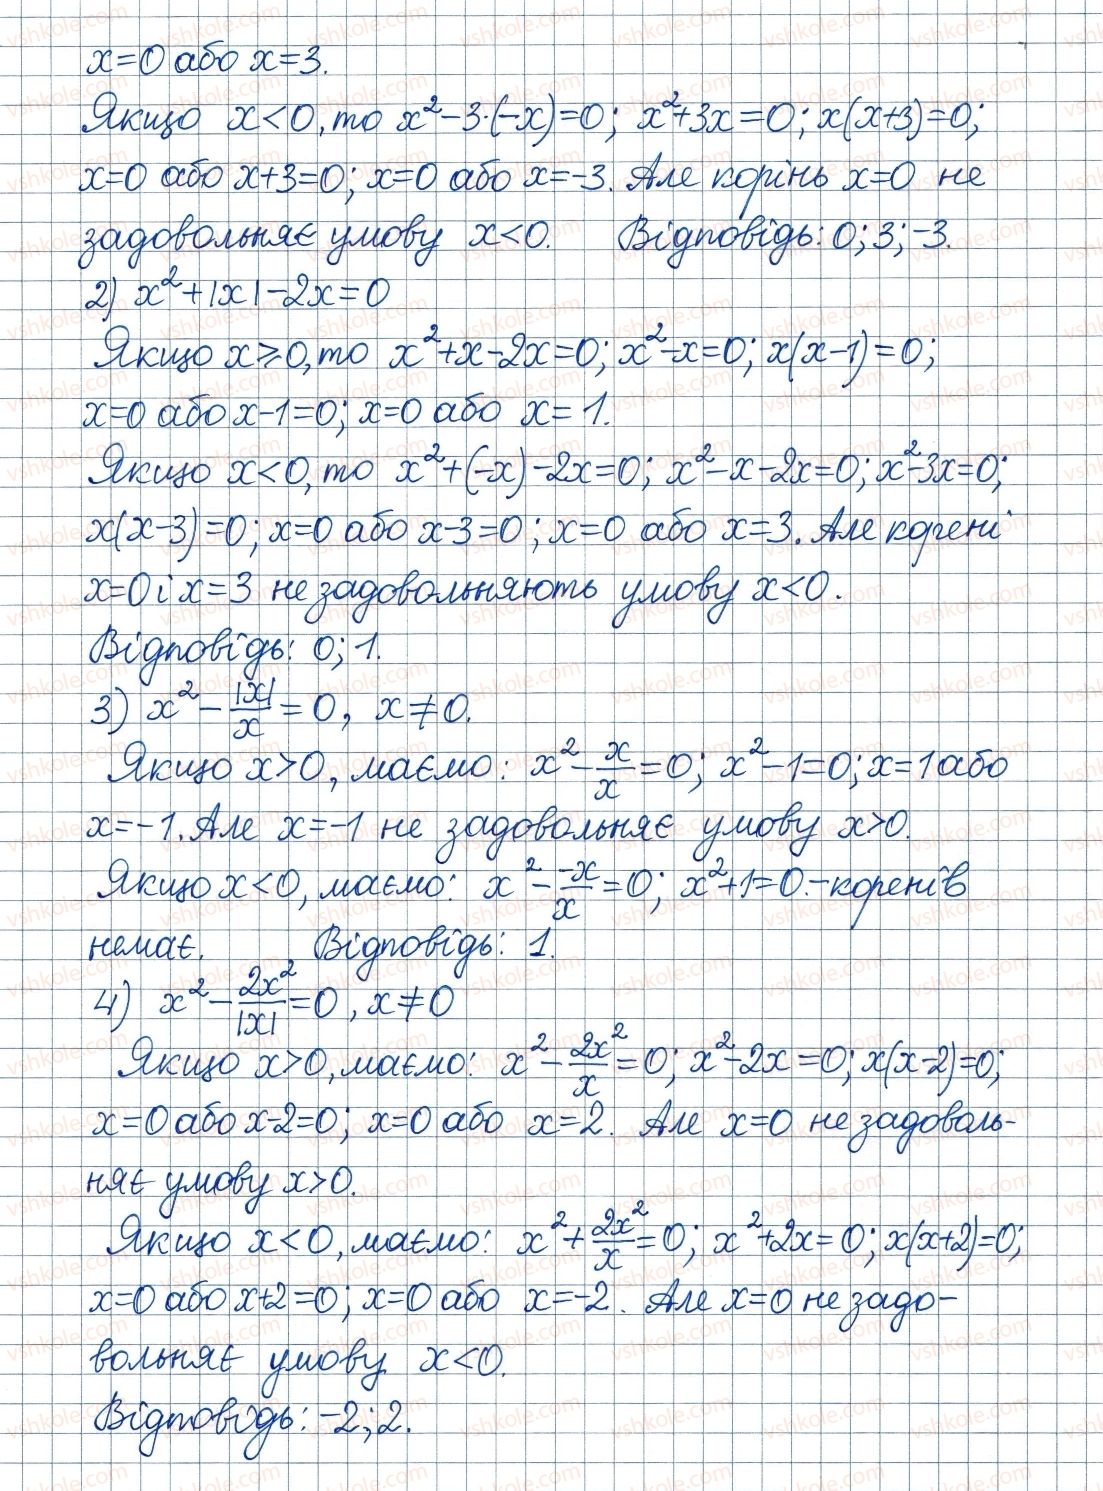 x=0 або x=3.
Якщо x<0, то x²-3·(-x)=0; x²+3x=0; x(x+3)=0;
x=0 або x+3=0; x=0 або x=-3. Але корінь x=0 не
задовольняє умову x<0. Відповідь: 0; 3; -3.
2) x²+|x|-2x=0
Якщо x≥0, то x²+x-2x=0; x²-x=0; x(x-1)=0;
x=0 або x-1=0; x=0 або x=1.
Якщо x<0, то x²+(-x)-2x=0; x²-x-2x=0; x²-3x=0;
x(x-3)=0; x=0 або x-3=0; x=0 або x=3. Але корені
x=0 і x=3 не задовольняють умову x<0.
Відповідь: 0; 1.
3) x²-|x|/x=0, x≠0.
Якщо x>0, маємо: x²-x/x=0; x²-1=0; x=1 або
x=-1. Але x=-1 не задовольняє умову x>0.
Якщо x<0, маємо: x²--x/x=0; x²+1=0.-коренів
немає. Відповідь: 1.
4) x²-2x²/|x|=0, x≠0
Якщо x>0, маємо: x²-2x²/x=0; x²-2x=0; x(x-2)=0;
x=0 або x-2=0; x=0 або x=2. Але x=0 не задоволь-
няє умову x>0.
Якщо x<0, маємо: x²+2x²/x=0; x²+2x=0; x(x+2)=0;
x=0 або x+2=0; x=0 або x=-2. Але x=0 не задо-
вольняє умову x<0.
Відповідь: -2; 2.
vshkole.com